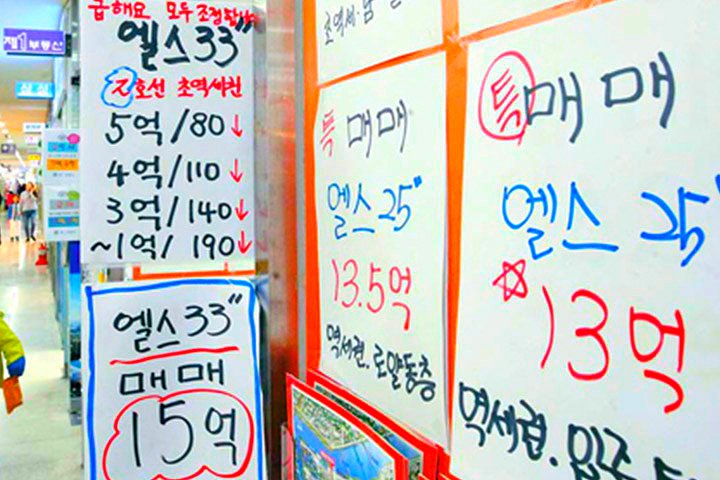 제1부동산
급해요 모두조정합니다
엘스33"
2호선 초역세권
5억/80↓
4억/110↓
3억/140↓
~1억/190↓
엘스33"
매매
15억
특 매매
엘스25"
13.5억
역세권.로얄동층
특매매
엘스25"
☆13억
역세권.입주